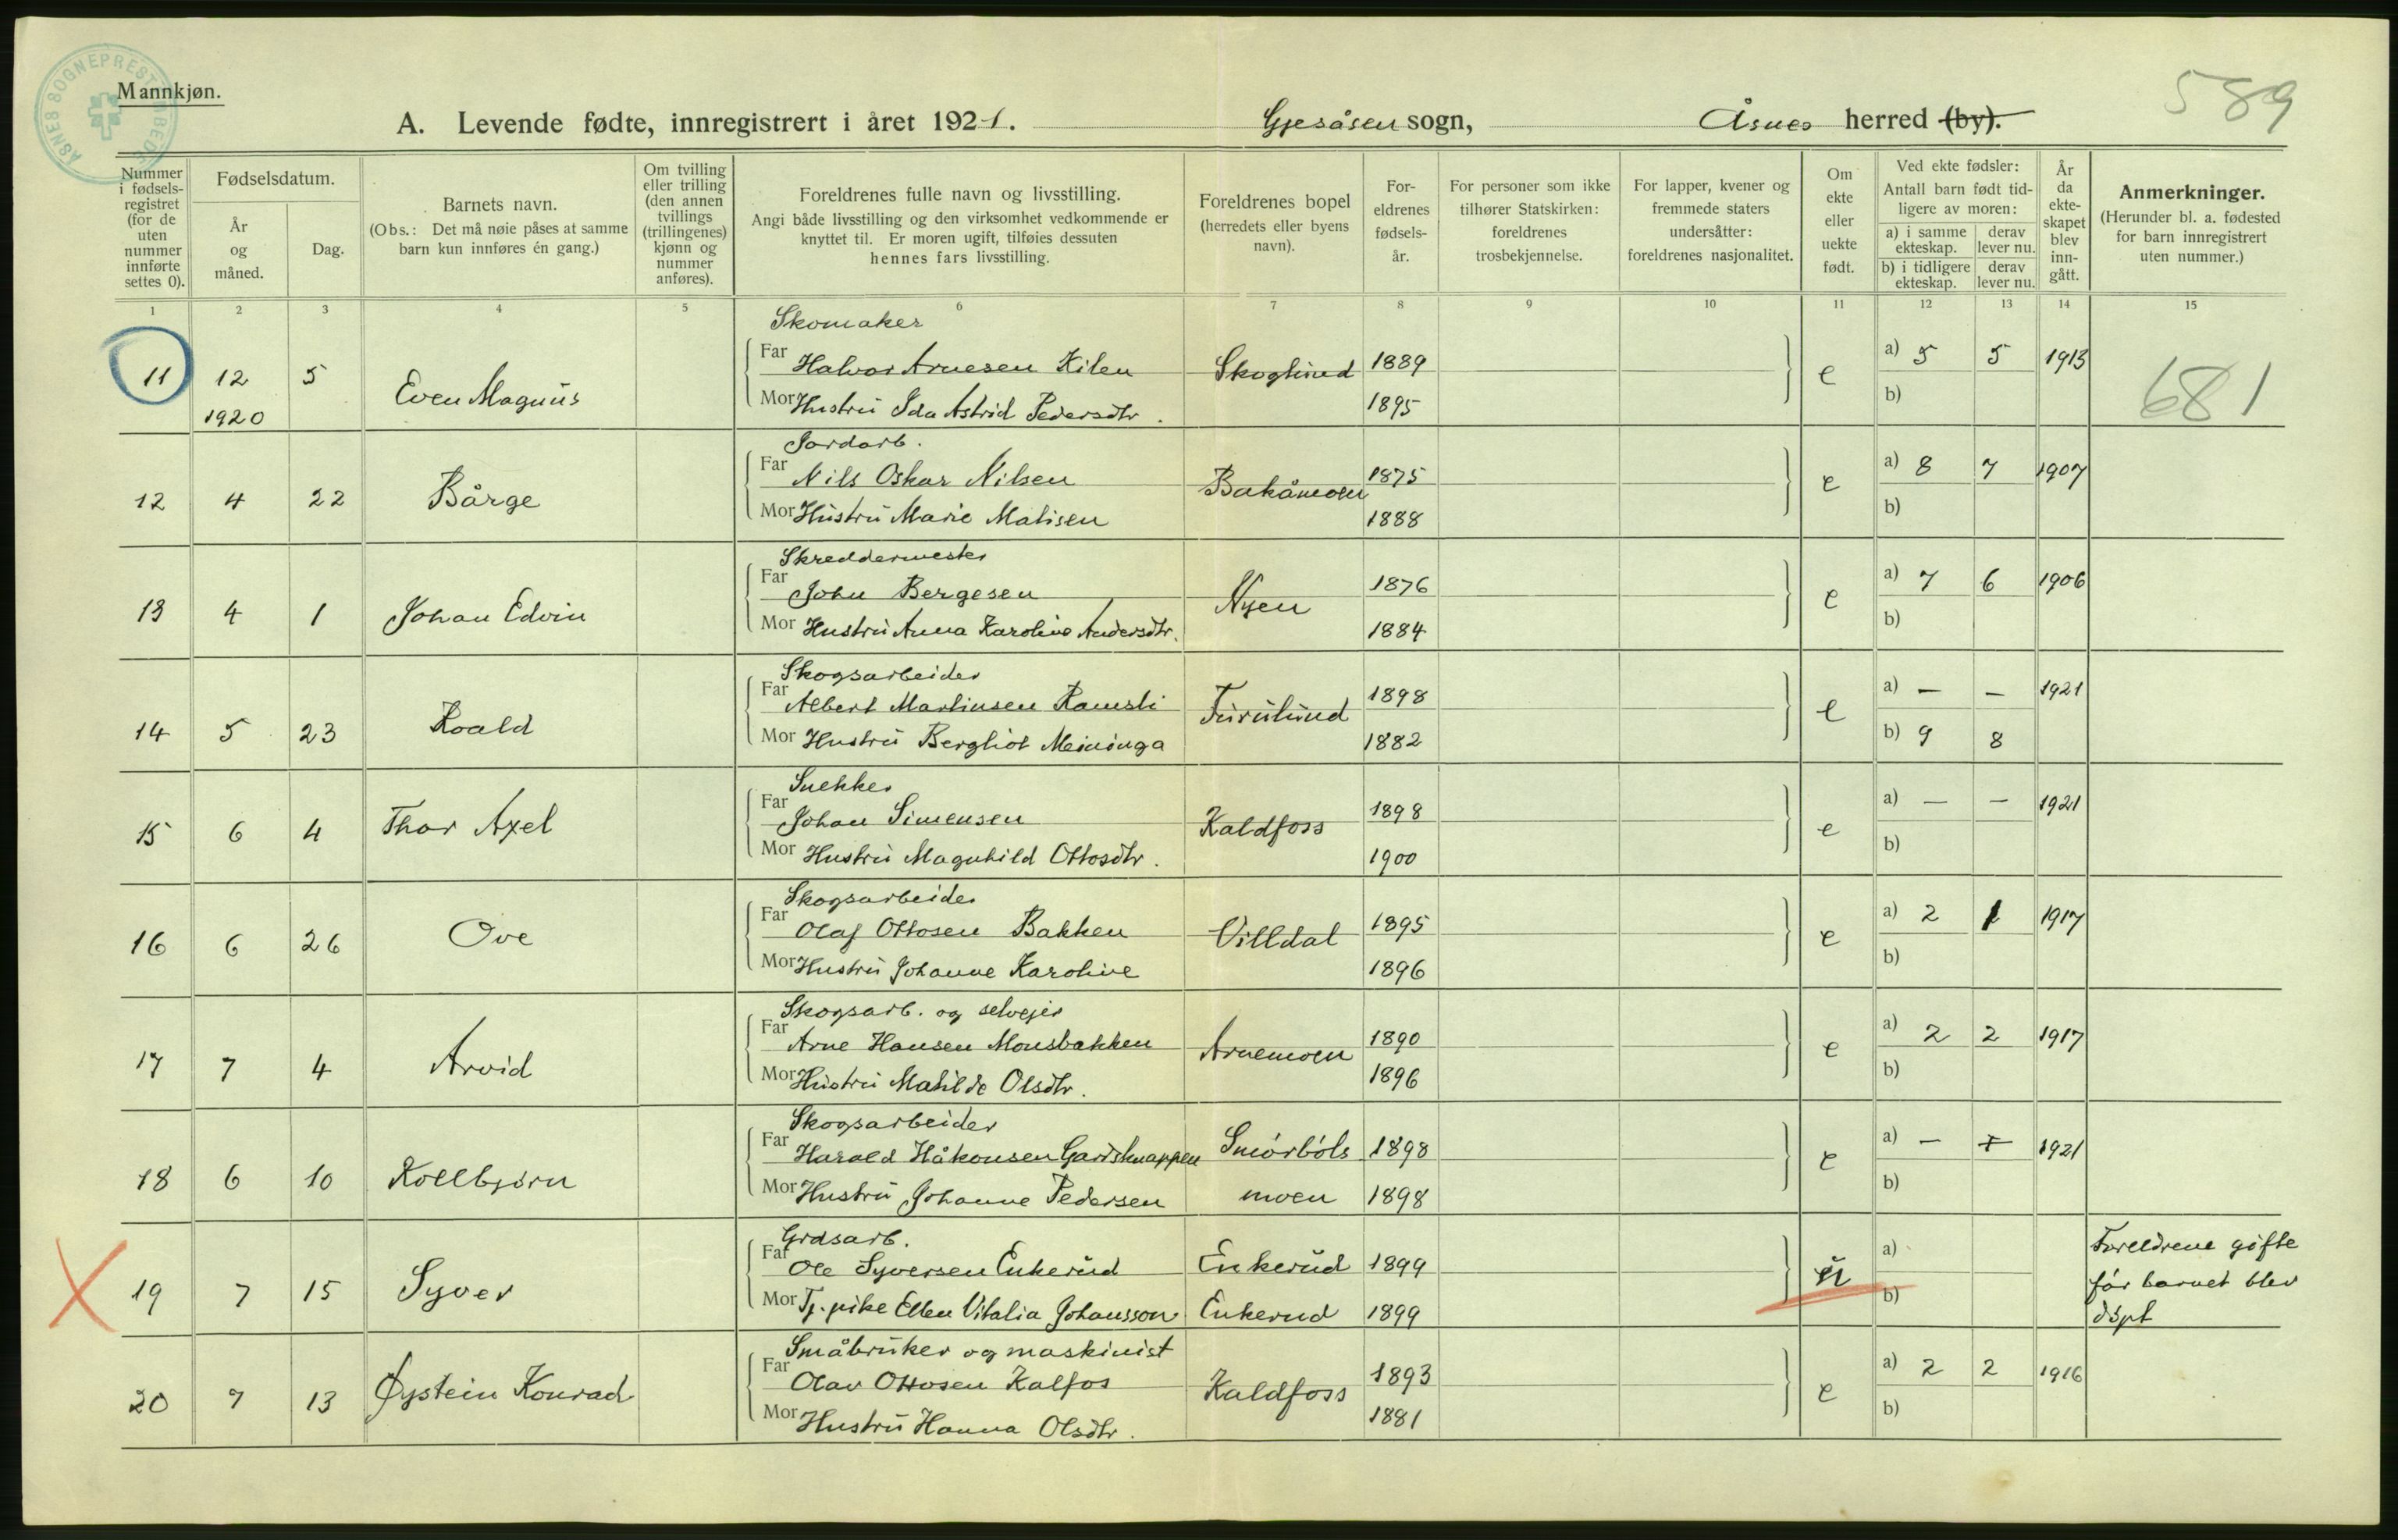 ÅSNES SOGNEPRESTEMBEDE
Mannkjøn.
589
A. Levende fødte, innregistrert i året 1921. Gjesåsen sogn, Åsnes herred (by).
Nummer i fødselsregistret (for de uten nummer innførte settes 0).
Fødselsdatum.
År og måned.
Dag.
Barnets navn.
(Obs.: Det må nøie påses at samme barn kun innføres én gang.)
Om tvilling eller trilling (den annen tvillings (trillingenes) kjønn og nummer anføres).
Foreldrenes fulle navn og livsstilling.
Angi både livsstilling og den virksomhet vedkommende er knyttet til. Er moren ugift, tilføies dessuten hennes fars livsstilling.
Foreldrenes bopel (herredets eller byens navn).
Foreldrenes fødselsår.
For personer som ikke tilhører Statskirken: foreldrenes trosbekjennelse.
For lapper, kvener og fremmede staters undersåtter: foreldrenes nasjonalitet.
Om ekte eller uekte født.
Ved ekte fødsler:
Antall barn født tidligere av moren:
a) i samme ekteskap. derav lever nu.
b) i tidligere ekteskap. derav lever nu.
År da ekteskapet blev inngått.
Anmerkninger.
(Herunder bl. a. fødested for barn innregistrert uten nummer.)
1 2 3 4 5 6 7 8 9 10 11 12 13 14 15
Skomaker
11 12 1920 5 Even Magnus
Far Halvor Arnesen Kilen Skoglund 1889 e a) 5 5 1913 681
Mor Hustru Ida Astrid Pedersdtr. 1895 b)
Jordarb.
12 4 22 Bårge
Far Nils Oskar Nilsen Bakåmoen 1875 e a) 8 7 1907
Mor Hustru Marie Matisen 1888 b)
Skreddermester
13 4 1 Johan Edvin
Far John Bergesen Nyen 1876 e a) 7 6 1906
Mor Hustru Anna Karoline Andersdtr. 1884 b)
Skogsarbeider
14 5 23 Roald
Far Albert Martinsen Ramsli Furulund 1898 e a) — — 1921
Mor Hustru Bergliot Meininga 1882 b) 9 8
Snekker
15 6 4 Thor Axel
Far Johan Simensen Kaldfoss 1898 e a) — — 1921
Mor Hustru Magnhild Ottosdtr. 1900 b)
Skogsarbeider
16 6 26 Ove
Far Olaf Ottosen Bakken Villdal 1895 e a) 2 1 1917
Mor Hustru Johanne Karoline 1896 b)
Skogsarb. og selveier
17 7 4 Arvid
Far Arne Hansen Monsbakken Arnemoen 1890 e a) 2 2 1917
Mor Hustru Matilde Olsdtr. 1896 b)
Skogsarbeider
18 6 10 Kollbjørn
Far Harald Håkonsen Gardsknappen Smørbóls 1898 e a) — 1921
Mor Hustru Johanne Pedersen moen 1898 b)
Grdsarb.
19 7 15 Syver
Far Ole Syversen Enkerud Enkerud 1899 u a) Foreldrene gifte
Mor Tj. pike Ellen Vitalia Johansson Enkerud 1899 b) før barnet blev
døpt
Småbruker og maskinist
20 7 13 Øystein Konrad
Far Olav Ottosen Kalfos Kaldfoss 1893 e a) 2 2 1916
Mor Hustru Hanna Olsdtr. 1881 b)